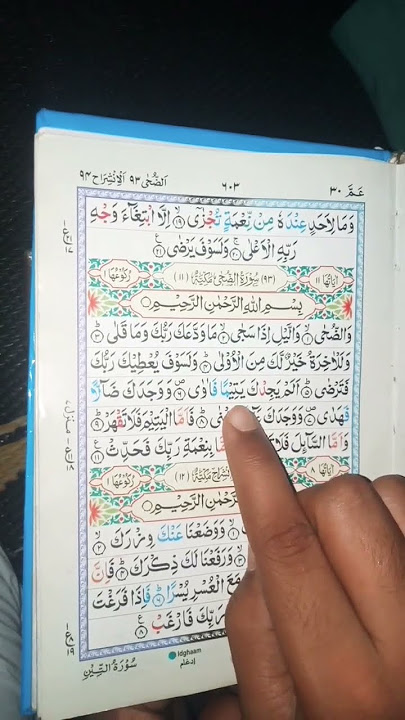 اَلضُّحٰی ٩٣ اَلْاِنْشِرَاح ٩٤
٦٠٣
عَمَّ ٣٠
وَمَا لِاَحَدٍ عِنْدَهٗ مِنْ نِّعْمَةٍ تُجْزٰٓى ۙ﴿١٩﴾ اِلَّا ابْتِغَآءَ وَجْهِ
رَبِّهِ الْاَعْلٰى ۚ﴿٢٠﴾ وَلَسَوْفَ يَرْضٰى ﴿٢١﴾
اٰيَاتُهَا ١١ (٩٣) سُوْرَةُ الضُّحٰى مَكِّيَّةٌ (١١) رُكُوْعُهَا ١
بِسْمِ اللّٰهِ الرَّحْمٰنِ الرَّحِيْمِ
وَالضُّحٰى ۙ﴿١﴾ وَالَّيْلِ اِذَا سَجٰى ۙ﴿٢﴾ مَا وَدَّعَكَ رَبُّكَ وَمَا قَلٰى ؕ﴿٣﴾
وَلَلْاٰخِرَةُ خَيْرٌ لَّكَ مِنَ الْاُوْلٰى ؕ﴿٤﴾ وَلَسَوْفَ يُعْطِيْكَ رَبُّكَ
فَتَرْضٰى ؕ﴿٥﴾ اَلَمْ يَجِدْكَ يَتِيْمًا فَاٰوٰى ۪﴿٦﴾ وَوَجَدَكَ ضَآلًّا
فَهَدٰى ۪﴿٧﴾ وَوَجَدَكَ فَاَمَّا الْيَتِيْمَ فَلَا تَقْهَرْ ؕ﴿٩﴾
وَاَمَّا السَّآئِلَ فَلَا بِنِعْمَةِ رَبِّكَ فَحَدِّثْ ﴿١١﴾
اٰيَاتُهَا ٨ مَكِّيَّةٌ (١٢) رُكُوْعُهَا ١
الرَّحْمٰنِ الرَّحِيْمِ
﴿١﴾ وَوَضَعْنَا عَنْكَ وِزْرَكَ ۙ﴿٢﴾
﴿٣﴾ وَرَفَعْنَا لَكَ ذِكْرَكَ ؕ﴿٤﴾ فَاِنَّ
مَعَ الْعُسْرِ يُسْرًا ؕ﴿٦﴾ فَاِذَا فَرَغْتَ
رَبِّكَ فَارْغَبْ ﴿٨﴾
Idghaam
ادغام
سُوْرَةُ التِّيْنِ